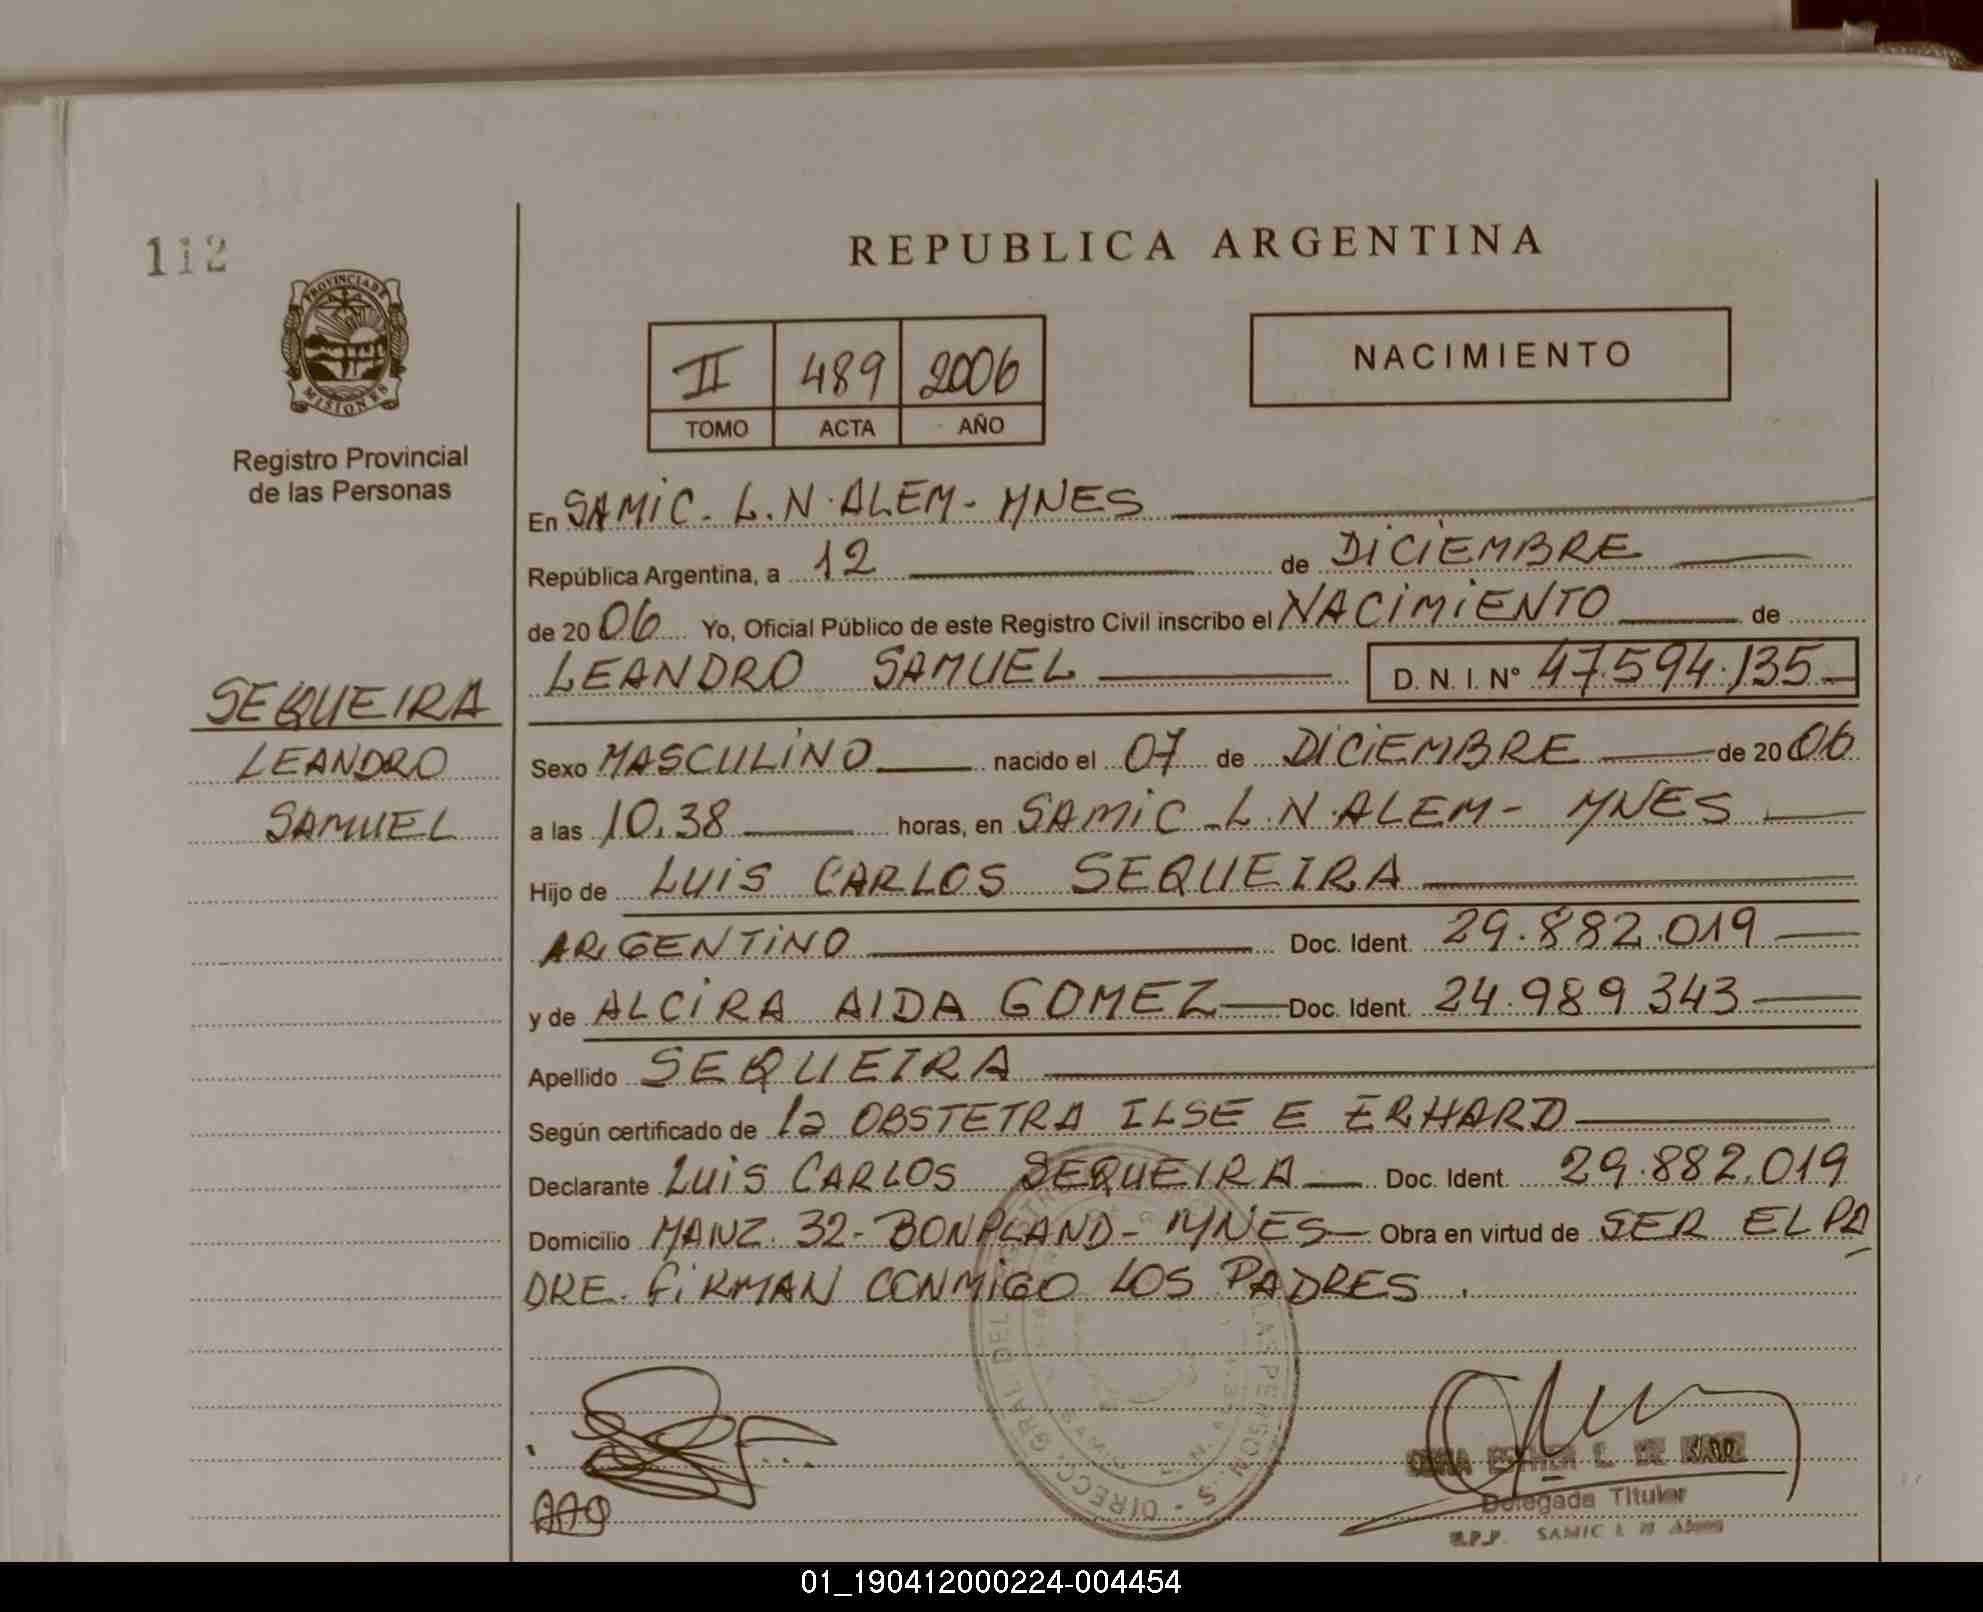 112
REPUBLICA ARGENTINA
PROVINCIA DE
MISIONES
Registro Provincial
de las Personas
II 489 2006
TOMO ACTA AÑO
NACIMIENTO
En SAMIC. L.N. ALEM - MNES
República Argentina, a 12 de DICIEMBRE
de 2006 Yo, Oficial Público de este Registro Civil inscribo el NACIMIENTO de
LEANDRO SAMUEL D. N. I. Nº 47.594.135
SEQUEIRA
LEANDRO
SAMUEL
Sexo MASCULINO nacido el 07 de DICIEMBRE de 2006
a las 10.38 horas, en SAMIC - L.N. ALEM - MNES
Hijo de LUIS CARLOS SEQUEIRA
ARGENTINO Doc. Ident. 29.882.019
y de ALCIRA AIDA GOMEZ Doc. Ident. 24.989.343
Apellido SEQUEIRA
Según certificado de la OBSTETRA ILSE E ERHARD
Declarante LUIS CARLOS SEQUEIRA Doc. Ident. 29.882.019
Domicilio MANZ. 32 - BONPLAND - MNES Obra en virtud de SER EL PA
DRE. FIRMAN CONMIGO LOS PADRES.
DIRECC. GRAL DEL LAS PERSONAS
ESTHER L. DE
Delegada Titular
R.P.P. SAMIC L N Alem
01_190412000224-004454